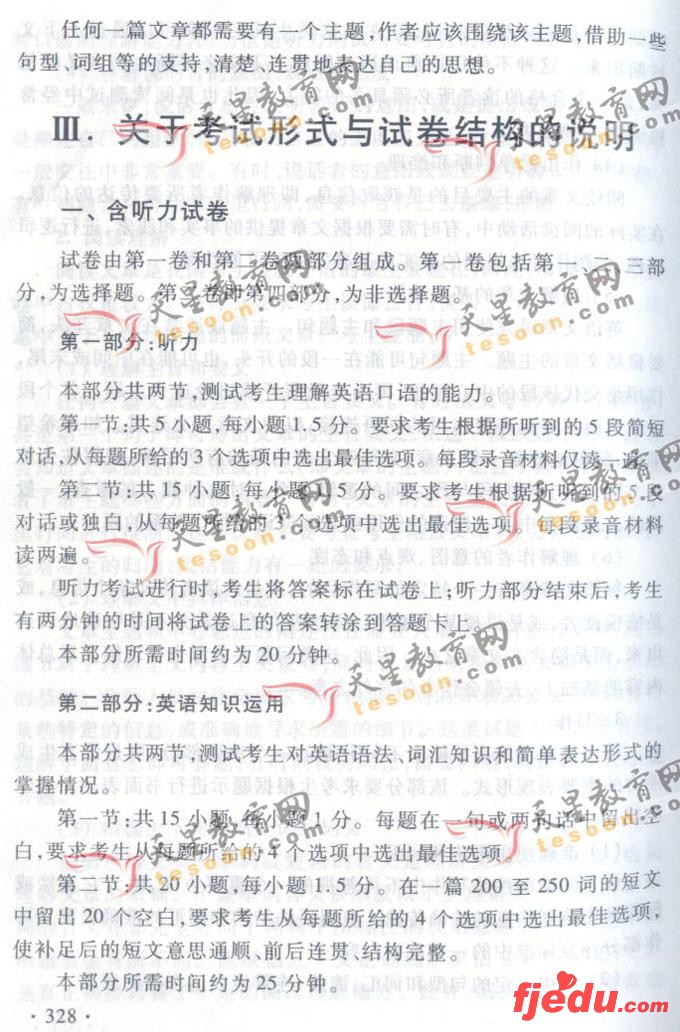 任何一篇文章都需要有一个主题,作者应该围绕该主题,借助一些
句型、词组等的支持,清楚、连贯地表达自己的思想。
Ⅲ 关于考试形式与试卷结构的说明
一、含听力试卷
试卷由第一卷和第二卷两部分组成。第一卷包括第一、二、三部
分,为选择题。第二卷即第四部分,为非选择题。
第一部分:听力
本部分共两节,测试考生理解英语口语的能力。
第一节:共5小题,每小题1.5分。要求考生根据所听到的5段简短
对话,从每题所给的3个选项中选出最佳选项。每段录音材料仅读一遍。
第二节:共15小题,每小题1.5分。要求考生根据所听到的5段
对话或独白,从每题所给的3个选项中选出最佳选项。每段录音材料
读两遍。
听力考试进行时,考生将答案标在试卷上;听力部分结束后,考生
有两分钟的时间将试卷上的答案转涂到答题卡上。
本部分所需时间约为20分钟。
第二部分:英语知识运用
本部分共两节,测试考生对英语语法、词汇知识和简单表达形式的
掌握情况。
第一节:共15小题,每小题1分。每题在一句或两句话中留出空
白,要求考生从每题所给的4个选项中选出最佳选项。
第二节:共20小题,每小题1.5分。在一篇200至250词的短文
中留出20个空白,要求考生从每题所给的4个选项中选出最佳选项,
使补足后的短文意思通顺、前后连贯、结构完整。
本部分所需时间约为25分钟。
·328·
天星教育网
tesoon.com
天星教育网
tesoon.com
天星教育网
tesoon.com
天星教育网
tesoon.com
天星教育网
tesoon.com
天星教育网
tesoon.com
天星教育网
tesoon.com
天星教育网
tesoon.com
fjedu.com